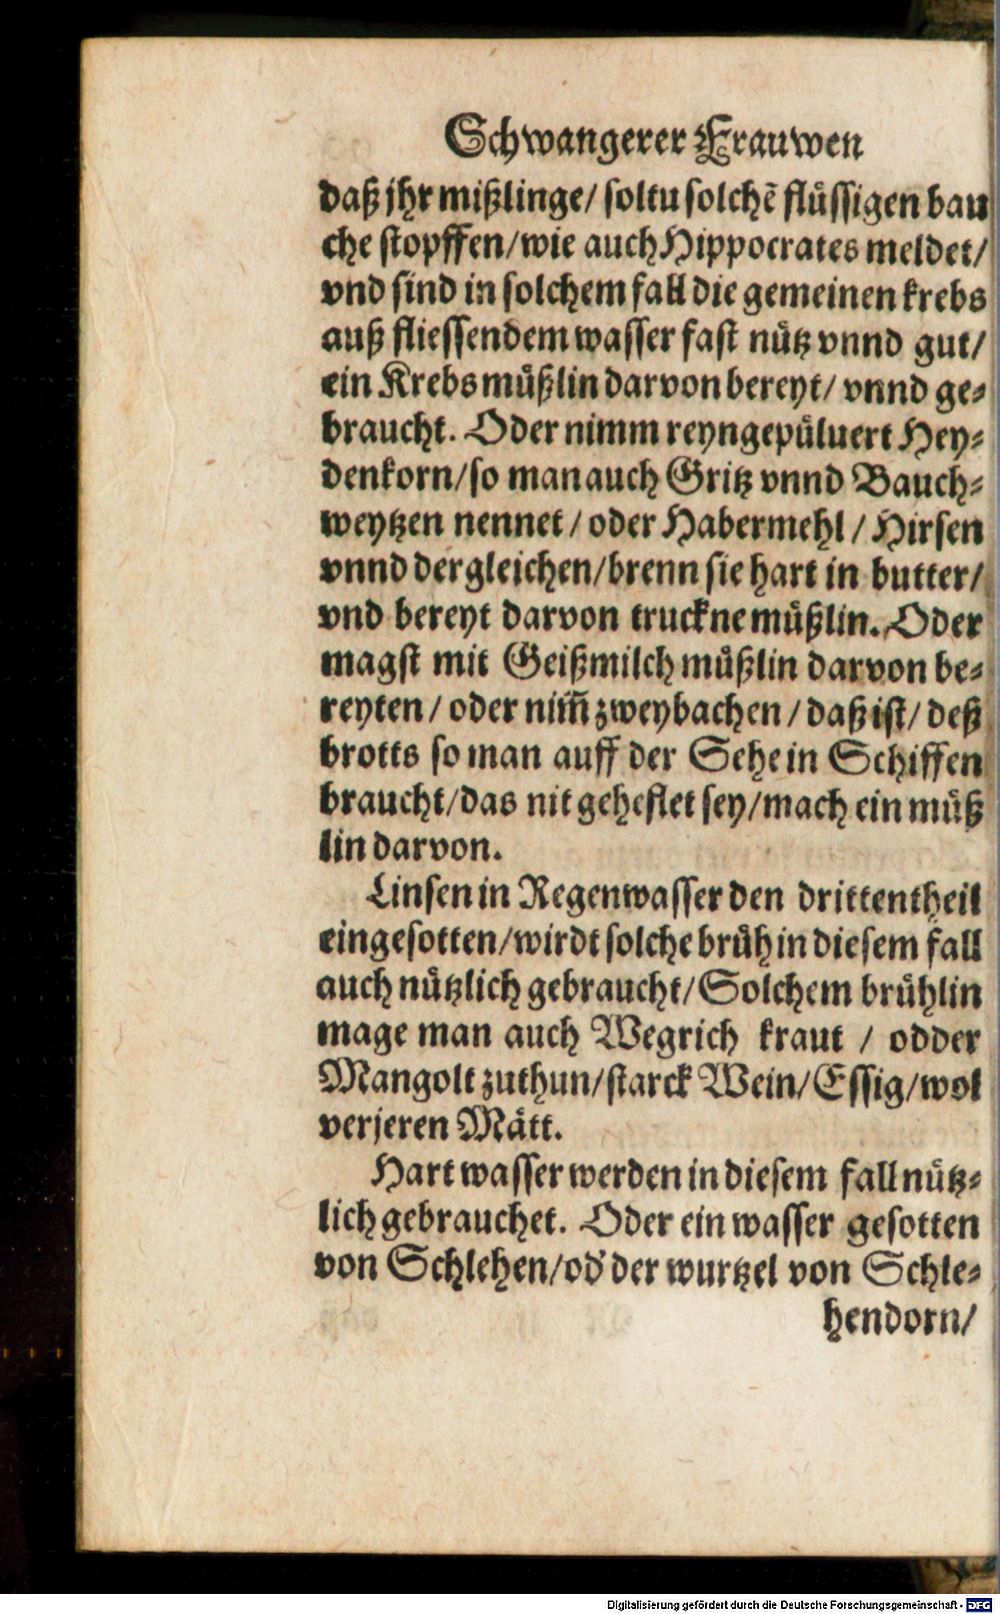 Schwangerer Frauwen
daß jhr mißlinge/ soltu solchē flüssigen bau
che stopffen/wie auch Hippocrates meldet/
vnd sind in solchem fall die gemeinen krebs
auß fliessendem wasser fast nütz vnnd gut/
ein Krebsmüßlin darvon bereyt/ vnnd ge-
braucht. Oder nimm reyngepülvert Hey-
denkorn/so man auch Gritz vnnd Bauch-
weytzen nennet / oder Habermehl / Hirsen
vnnd dergleichen/brenn sie hart in butter/
vnd bereyt darvon truckne müßlin. Oder
magst mit Geißmilch müßlin darvon be-
reyten / oder nim̃ zweybachen / daß ist/ deß
brotts so man auff der Sehe in Schiffen
braucht/das nit geheflet sey/mach ein müß
lin darvon.
Linsen in Regenwasser den drittentheil
eingesotten/wirdt solche brüh in diesem fall
auch nützlich gebraucht/Solchem brühlin
mage man auch Wegrich kraut / odder
Mangolt zuthun/starck Wein/Essig/wol
verjeren Mätt.
Hart wasser werden in diesem fall nütz-
lich gebrauchet. Oder ein wasser gesotten
von Schlehen/od' der wurtzel von Schle-
hendorn/
Digitalisierung gefördert durch die Deutsche Forschungsgemeinschaft - DFG